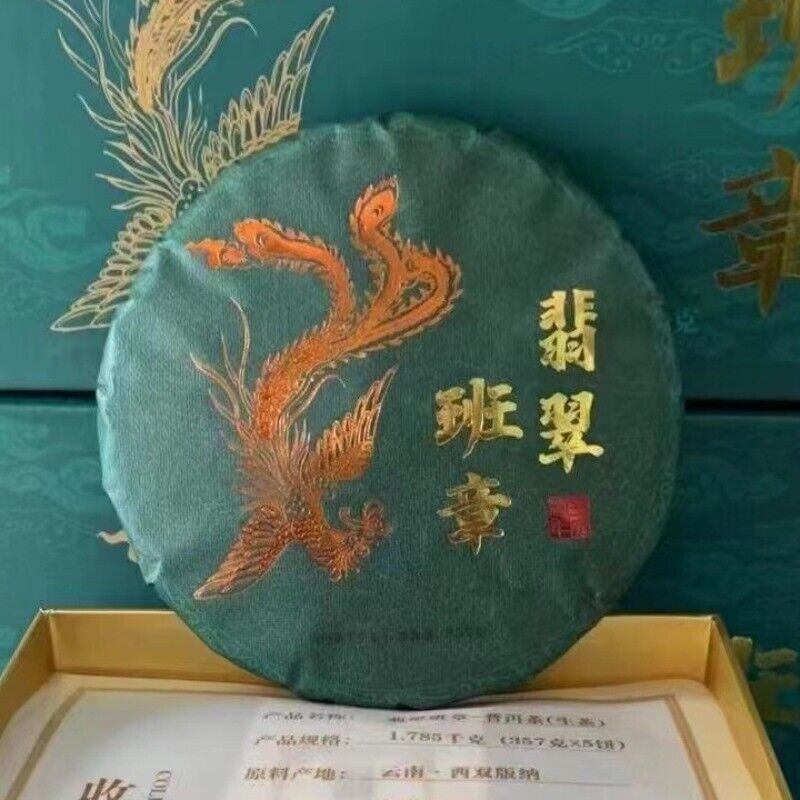 翡翠
班章
班章
克
产品名称： 翡翠班章-普洱茶(生茶)
产品规格： 1.785千克 (357克×5饼)
原料产地： 云南·西双版纳
收
COL